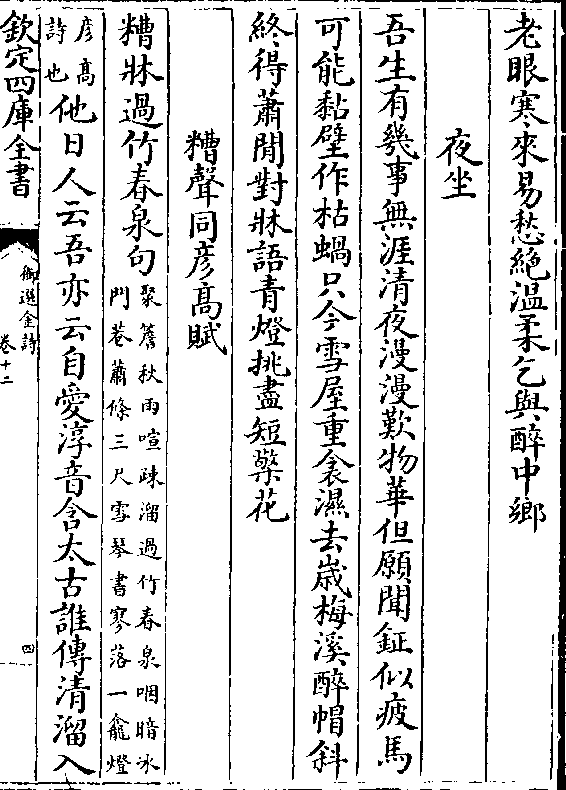 老眼寒來易愁絶温柔乞與醉中鄉
夜坐
吾生有幾事無涯清夜漫漫歎物華但願聞鉦似疲馬
可能黏壁作枯蝸只今雪屋重衾濕去歳梅溪醉帽斜
終得蕭閒對牀語青燈挑盡短檠花
糟聲同彦髙賦
糟牀過竹春泉句
聚簷秋雨喧疎溜過竹春泉咽暗冰
門巷蕭條三尺雪琴書寥落一龕燈
彦髙
詩也
他日人云吾亦云自愛淳音含太古誰傳清溜入
欽定四庫全書
御選金詩
卷十二
四